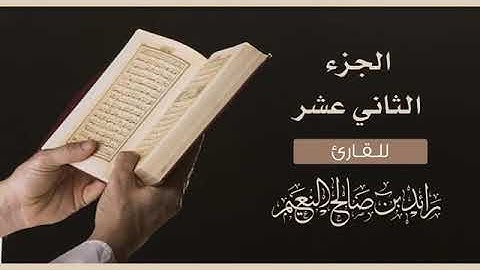 الجزء
الثاني عشر
للقارئ
رائد بن صالح النعيم